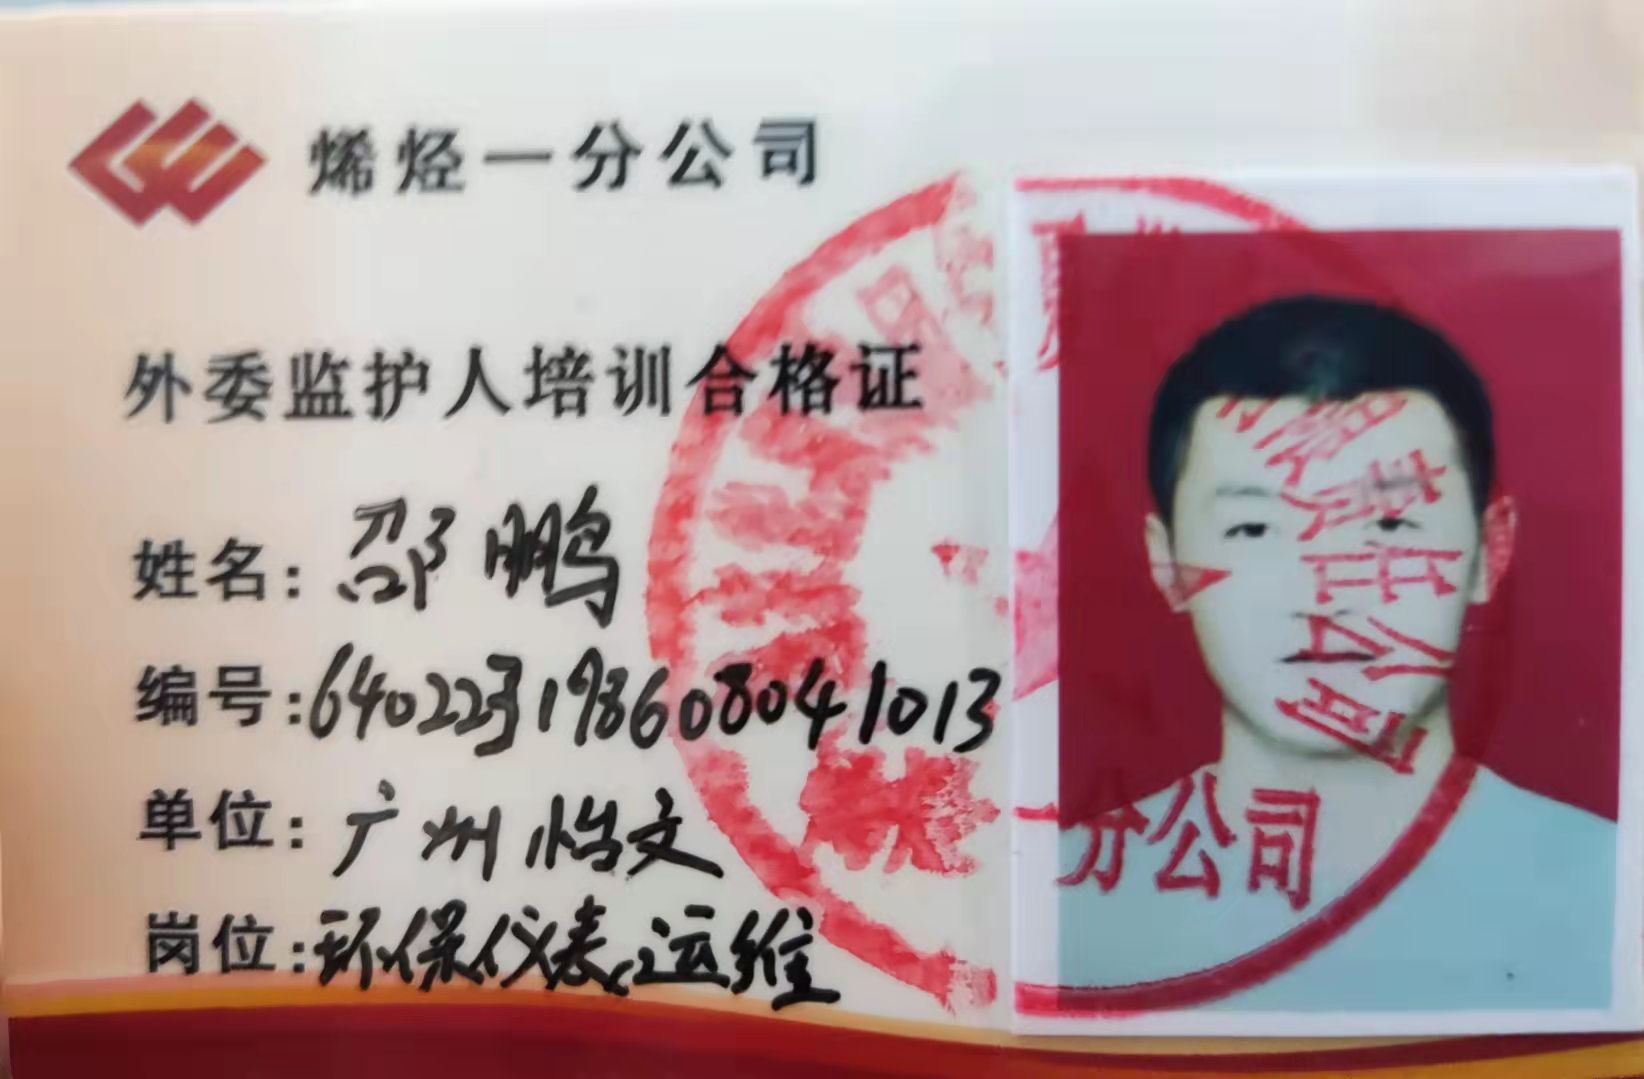 烯烃一分公司
外委监护人培训合格证
姓名：邵鹏
编号：640223198608041013
单位：广州怡文
岗位：环保仪表运维
责任公司
一分公司